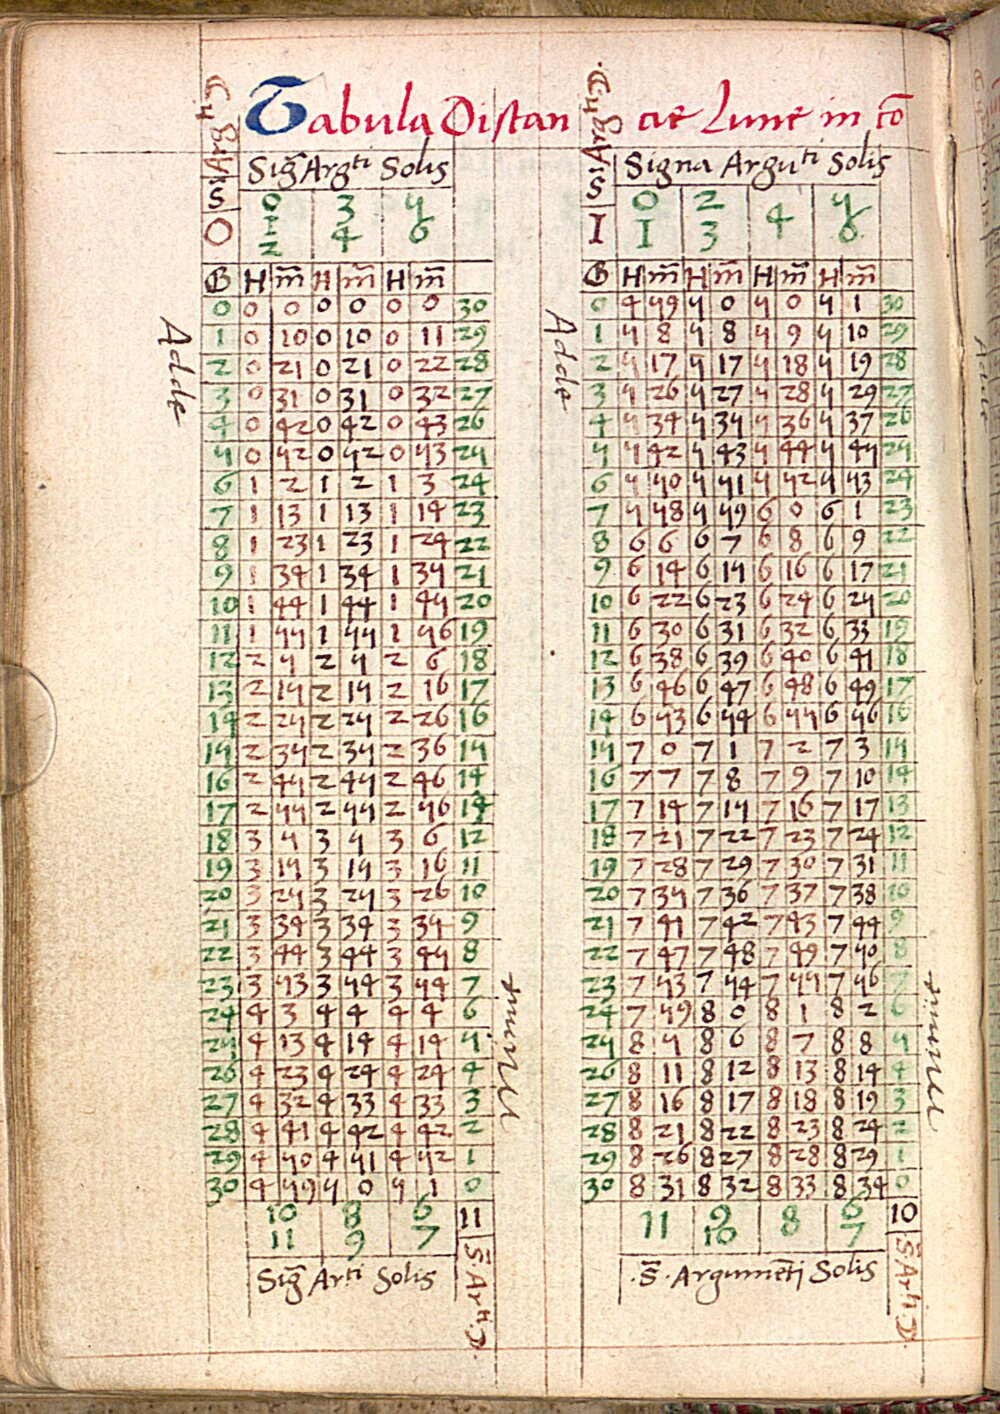 Tabula Distan cie Lune in cō
Sig̃ Argti Solis
S̄
0
0 3 5
1 4 6
2
G H m̄ H m̄ H m̄
0 0 0 0 0 0 0 30
1 0 10 0 10 0 11 29
2 0 21 0 21 0 22 28
3 0 31 0 31 0 32 27
4 0 42 0 42 0 43 26
5 0 52 0 52 0 53 25
6 1 2 1 2 1 3 24
7 1 13 1 13 1 14 23
8 1 23 1 23 1 24 22
9 1 34 1 34 1 35 21
10 1 44 1 44 1 45 20
11 1 55 1 55 1 56 19
12 2 5 2 5 2 6 18
13 2 15 2 15 2 16 17
14 2 25 2 25 2 26 16
15 2 35 2 35 2 36 15
16 2 45 2 45 2 46 14
17 2 55 2 55 2 56 13
18 3 5 3 5 3 6 12
19 3 15 3 15 3 16 11
20 3 25 3 25 3 26 10
21 3 34 3 34 3 35 9
22 3 44 3 44 3 45 8
23 3 53 3 54 3 54 7
24 4 3 4 4 4 4 6
25 4 13 4 14 4 14 5
26 4 23 4 24 4 24 4
27 4 32 4 33 4 33 3
28 4 41 4 42 4 42 2
29 4 50 4 51 4 52 1
30 4 59 5 0 5 1 0
10 8 6 11
11 9 7
Sig̃ Arti Solis
S̄ Arti ☽
Adde
minue
Signa Arguti Solis
S̄
I
0 2 4 5
1 3 6
G H m̄ H m̄ H m̄ H m̄
0 4 59 5 0 5 0 5 1 30
1 5 8 5 8 5 9 5 10 29
2 5 17 5 17 5 18 5 19 28
3 5 26 5 27 5 28 5 29 27
4 5 34 5 35 5 36 5 37 26
5 5 42 5 43 5 44 5 45 25
6 5 50 5 51 5 52 5 53 24
7 5 58 5 59 6 0 6 1 23
8 6 6 6 7 6 8 6 9 22
9 6 14 6 15 6 16 6 17 21
10 6 22 6 23 6 24 6 25 20
11 6 30 6 31 6 32 6 33 19
12 6 38 6 39 6 40 6 41 18
13 6 46 6 47 6 48 6 49 17
14 6 53 6 54 6 55 6 56 16
15 7 0 7 1 7 2 7 3 15
16 7 7 7 8 7 9 7 10 14
17 7 14 7 15 7 16 7 17 13
18 7 21 7 22 7 23 7 24 12
19 7 28 7 29 7 30 7 31 11
20 7 35 7 36 7 37 7 38 10
21 7 41 7 42 7 43 7 44 9
22 7 47 7 48 7 49 7 50 8
23 7 53 7 54 7 55 7 56 7
24 7 59 8 0 8 1 8 2 6
25 8 5 8 6 8 7 8 8 5
26 8 11 8 12 8 13 8 14 4
27 8 16 8 17 8 18 8 19 3
28 8 21 8 22 8 23 8 24 2
29 8 26 8 27 8 28 8 29 1
30 8 31 8 32 8 33 8 34 0
11 9 8 6 10
10 7
·S̄· Argumēti Solis
S̄ Arti ☽
Adde
minue